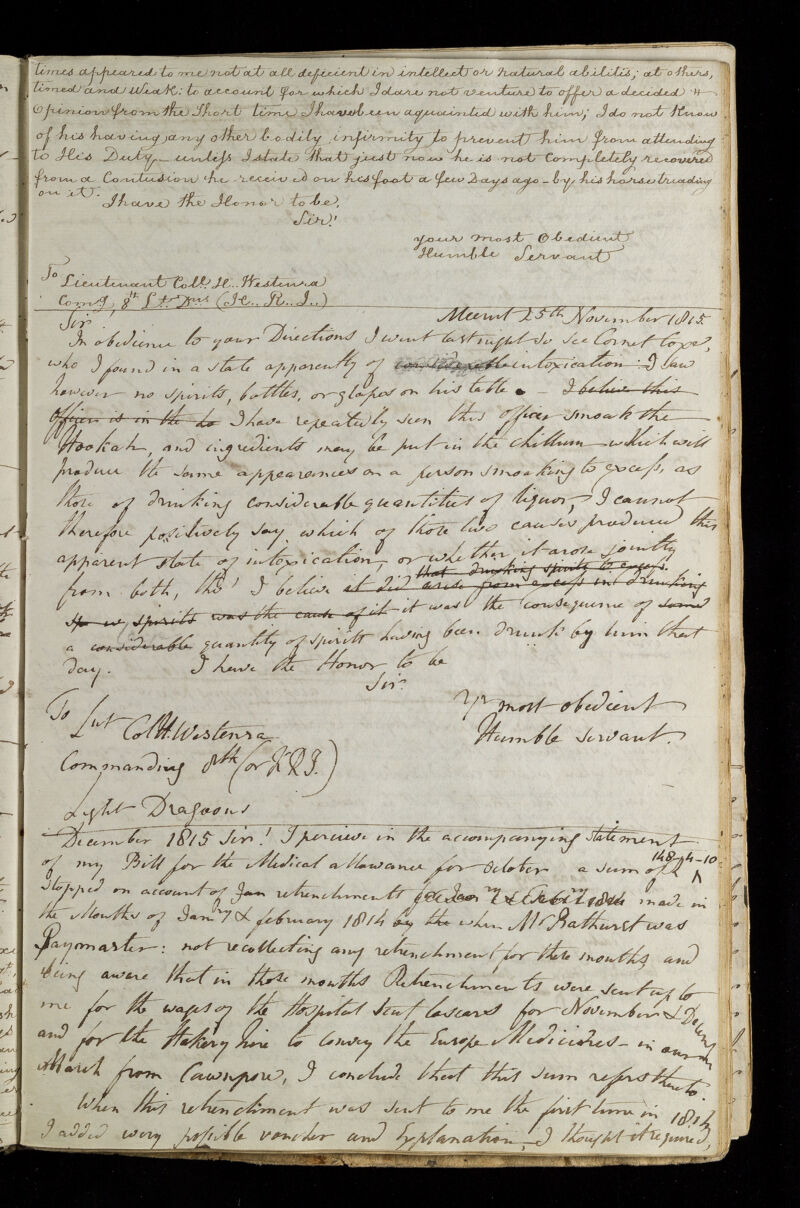 times appeared to me not at all deficient in intellect or natural abilitis; at others,
timed and Weak: to account for which I dare not venture to offer a decided
Opinion from the Short time I have been aquainted with him; I do not Know
of his having any other bodily infirmity to prevent him from attending
to His Duty, - unless I state that just now he is not Completely recovered
from a Contusion he received on his foot a few Days ago - by his horse treading
on it.
I have the Honor to be,
Sir!
your most Obedient
Humble Servant
To
Lieutenant Coll. H. Westenra
Comg. 8th Lt. Drs (K.. R.. I..)
Meerut 25th November 1815.
Sir
In obedience to your Directions I went last night to see Cornet Coxe,
who I found in a state apparently of considerable intoxication I saw
however no spirits, bottles, or glasses on his table. - I believe this
officer is in the ha I have repeatedly seen this officer smoak the
Hookah, and ingredients may be put in the chillum which will
produce the same appearances on a person smoaking to excess, as
those of drinking considerable quantities of liquor, I cannot
therefore positively say which of those two causes produced this
apparent state of intoxication, or whether it arose jointly
that drinking spirits to excess
from both, tho' I believe it did arise from excess in drinking
spirits was the cause of it it was the consequence of some
a considerable quantity of spirits having been drunk by him that
day. I have the Honor to be
Sir.
Yr most obedient
Humble servant.
To
Lieut Col H. Westenra
Commanding 8th (or K R I.)
Light Dragoons
December 1815 Sir! I percieve in the accompanying statement
of my Bill for the Medical allowance for October a sum of 148-4-10
stopped on account of Jan retrenchments for Jany & Feby 1814 made in
the Months of Jany & february 1814 by the when Mr Bathurst was
Paymaster: not recollecting any retrenchment for these months, and
being aware that in those months Retrenchments were sent up to
me for the wages of the Hospital tent Lascars for November & Decemr
and for the Hakery hire to convey the Europe Medicines - in our
March from Cawnpore, I conclude that this sum refers thereto.
When this retrenchment was sent to me the first time in 1814
I added every possible voucher and Explanation, I thought it required,